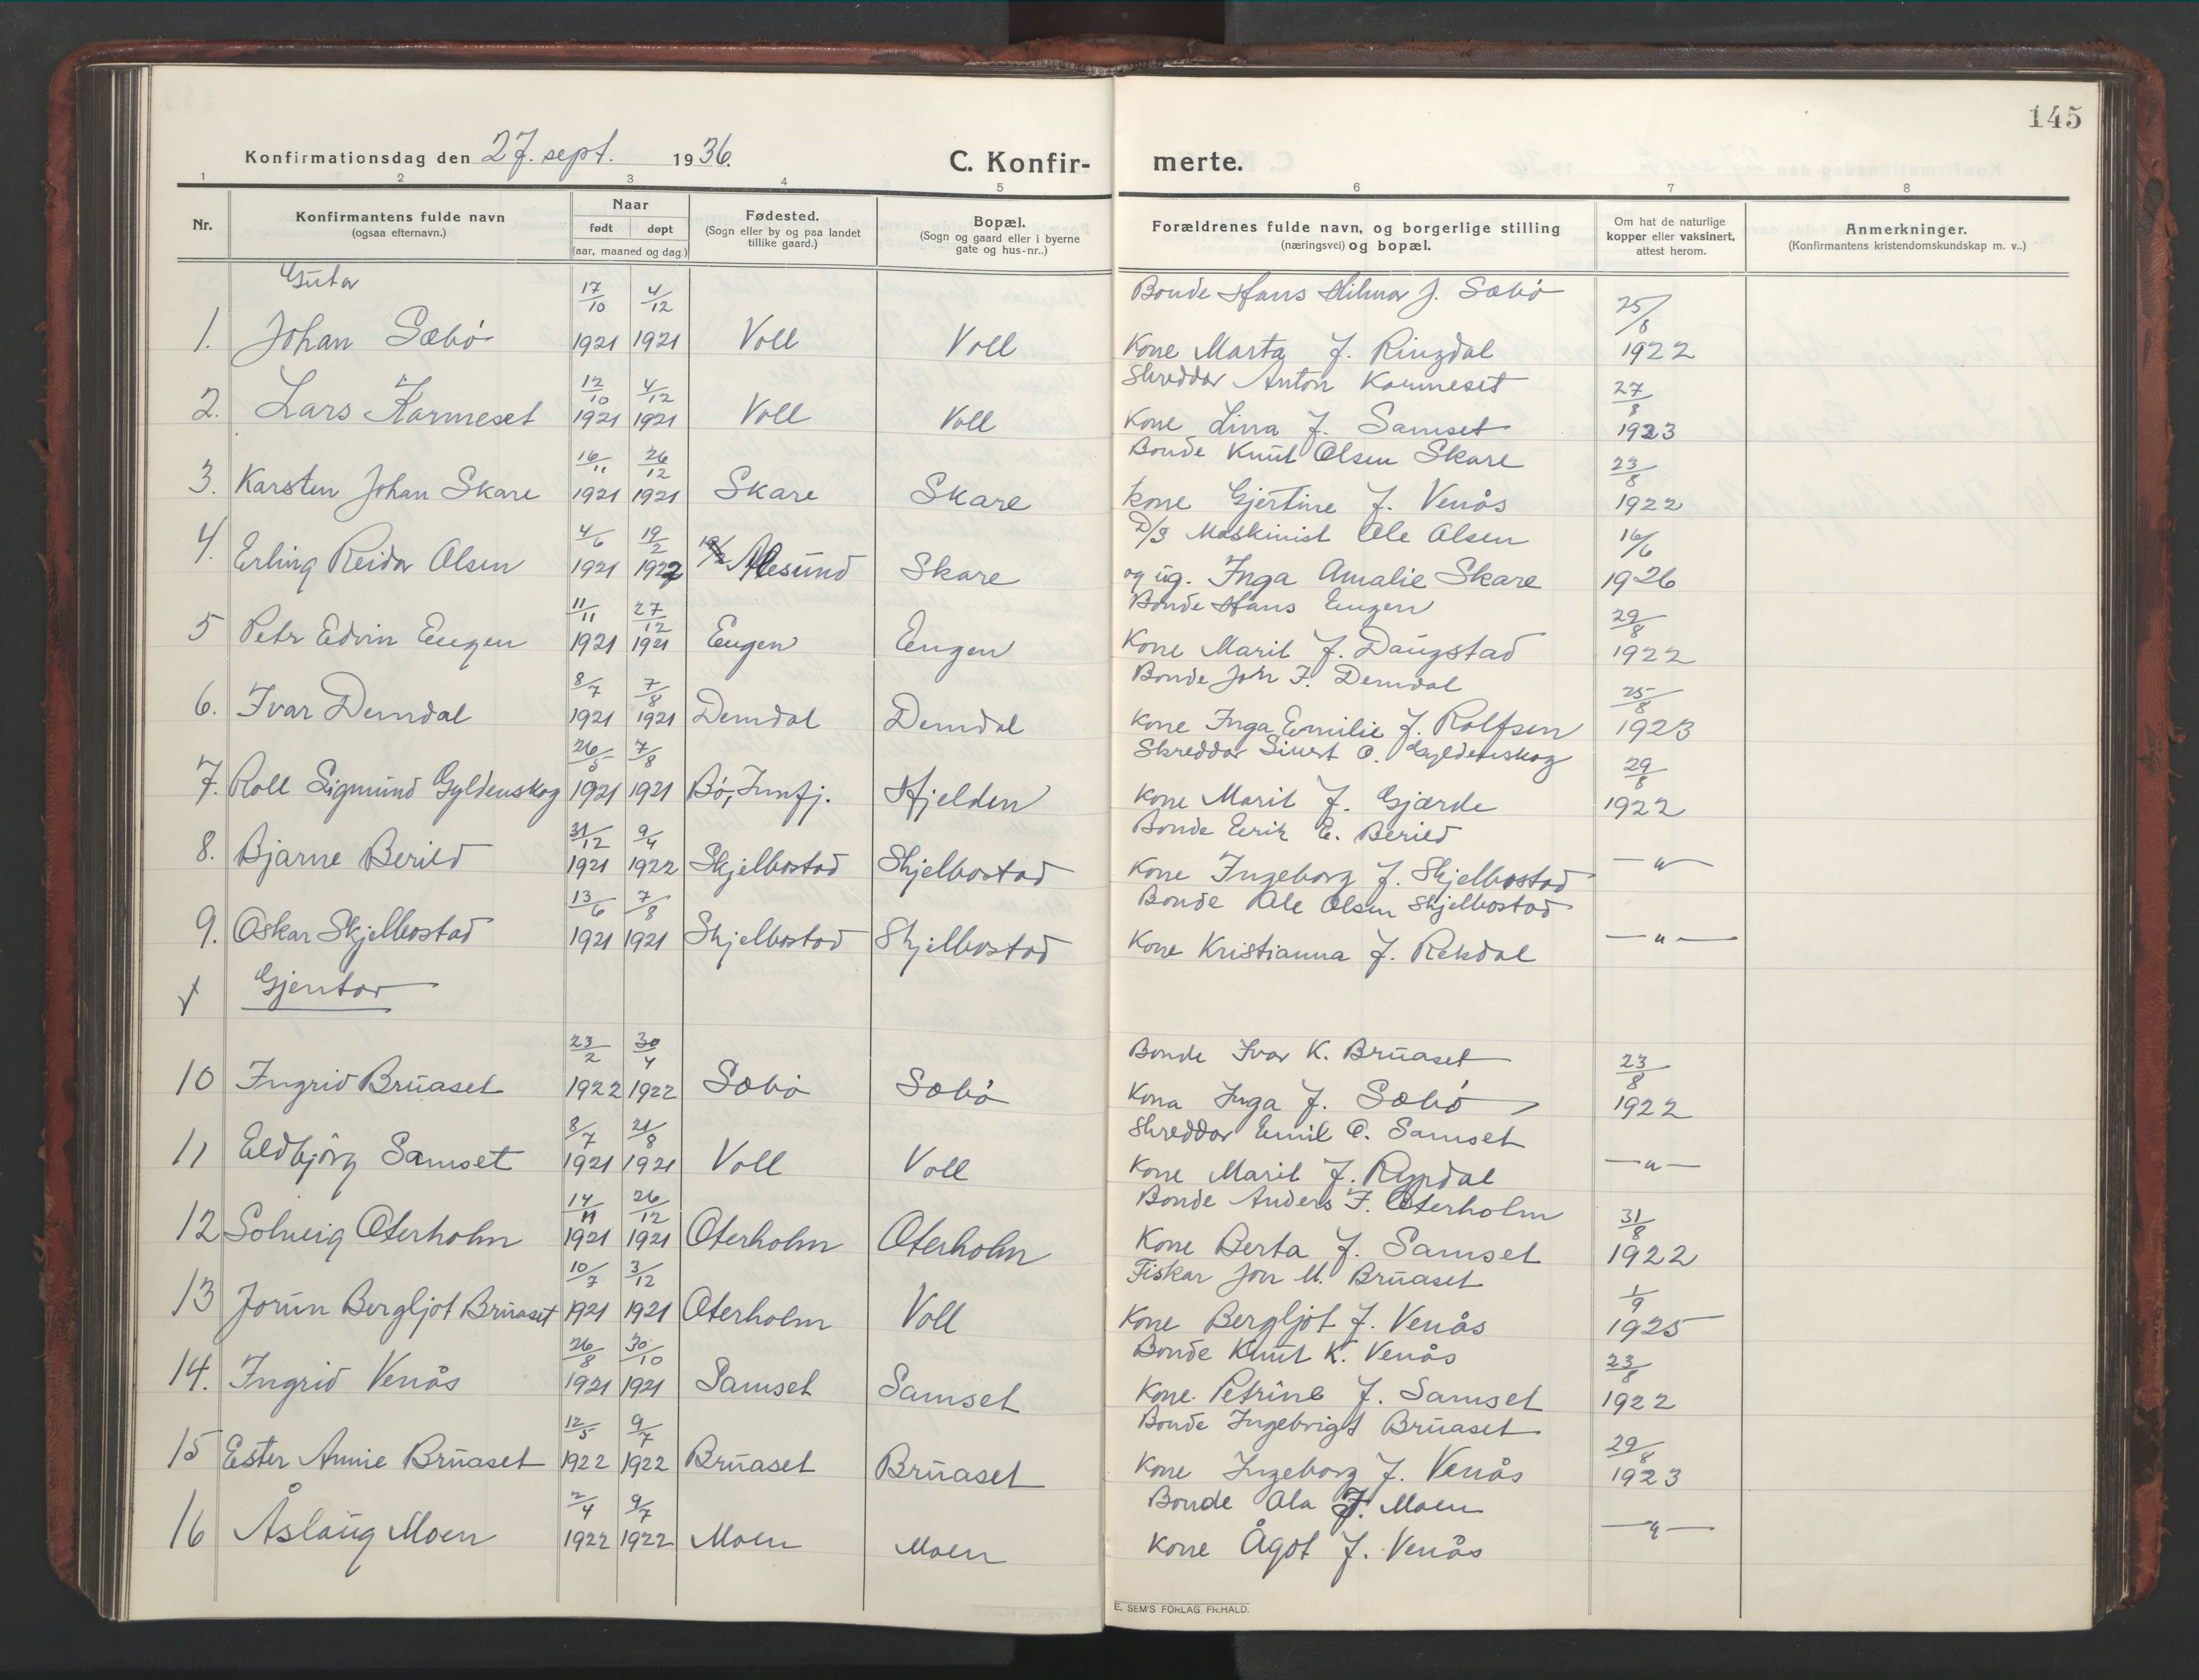 145
Konfirmationsdag den 27. sept. 1936.
C. Konfir- merte.
1 2 3 4 5 6 7 8
Nr.
Konfirmantens fulde navn
(ogsaa efternavn.)
Naar
født døpt
(aar, maaned og dag.)
Fødested.
(Sogn eller by og paa landet
tillike gaard.)
Bopæl.
(Sogn og gaard eller i byerne
gate og hus-nr..)
Forældrenes fulde navn, og borgerlige stilling
(næringsvei) og bopæl.
Om hat de naturlige
kopper eller vaksinert,
attest herom.
Anmerkninger.
(Konfirmantens kristendomskundskap m. v..)
Gutar
17/10 4/12 Bonde Hans Hilmar J. Sæbö 25/8
1. Johan Sæbö 1921 1921 Voll Voll Kone Marta f. Ringdal 1922
12/10 4/12 Skreddar Anton Kormeset 27/8
2. Lars Kormeset 1921 1921 Voll Voll Kone Lina f. Samset 1923
16/11 26/12 Bonde Knut Olsen Skare 23/8
3. Karsten Johan Skare 1921 1921 Skare Skare kone Gjertine f. Venås 1922
4/6 19/2 19/2 D/S Maskinist Ole Olsen 16/6
4. Erling Reidar Olsen 1921 1922 Ålesund Skare og ug. Inga Amalie Skare 1926
11/11 27/12 Bonde Hans Engen 29/8
5 Petr Edvin Engen 1921 1921 Engen Engen Kone Marit f. Daugstad 1922
8/7 7/8 Bonde John I. Demdal 25/8
6. Ivar Demdal 1921 1921 Demdal Demdal Kone Inga Emilie f. Rolfsen 1923
26/5 7/8 Skreddar Sivert O. Gyldenskog 29/8
7. Roll Sigmund Gyldenskog 1921 1921 Bö, Innfj. Hjelden Kone Marit f. Gjærde 1922
31/12 9/4 Bonde Eirik E. Berild
8. Bjarne Berild 1921 1922 Skjelbostad Skjelbostad Kone Ingeborg f. Skjelbostad — " —
13/6 7/8 Bonde Ole Olsen Skjelbostad
9. Oskar Skjelbostad 1921 1921 Skjelbostad Skjelbostad Kone Kristianna f. Rekdal — " —
Gjentor
23/2 30/4 Bonde Ivar K. Bruaset 23/8
10 Ingrid Bruaset 1922 1922 Sæbö Sæbö Kona Inga f. Sæbö 1922
8/7 21/8 Skreddar Emil O. Samset
11 Eldbjörg Samset 1921 1921 Voll Voll Kone Marit f. Rypdal — " —
14/11 26/12 Bonde Anders I. Oterholm 31/8
12 Solveig Oterholm 1921 1921 Oterholm Oterholm Kone Berta f. Samset 1922
10/7 3/12 Fiskar Jon M. Bruaset 1/9
13 Jorun Bergljot Bruaset 1921 1921 Oterholm Voll Kone Bergljot f. Venås 1925
26/8 30/10 Bonde Knut K. Venås 23/8
14. Ingrid Venås 1921 1921 Samset Samset Kone Petrine f. Samset 1922
12/5 9/7 Bonde Ingebrigt Bruaset 29/8
15 Ester Annie Bruaset 1922 1922 Bruaset Bruaset Kone Ingeborg f. Venås 1923
2/4 9/7 Bonde Ola J. Moen
16 Åslaug Moen 1922 1922 Moen Moen Kone Ågot f. Venås — " —
E. SEM'S FORLAG FR.HALD.